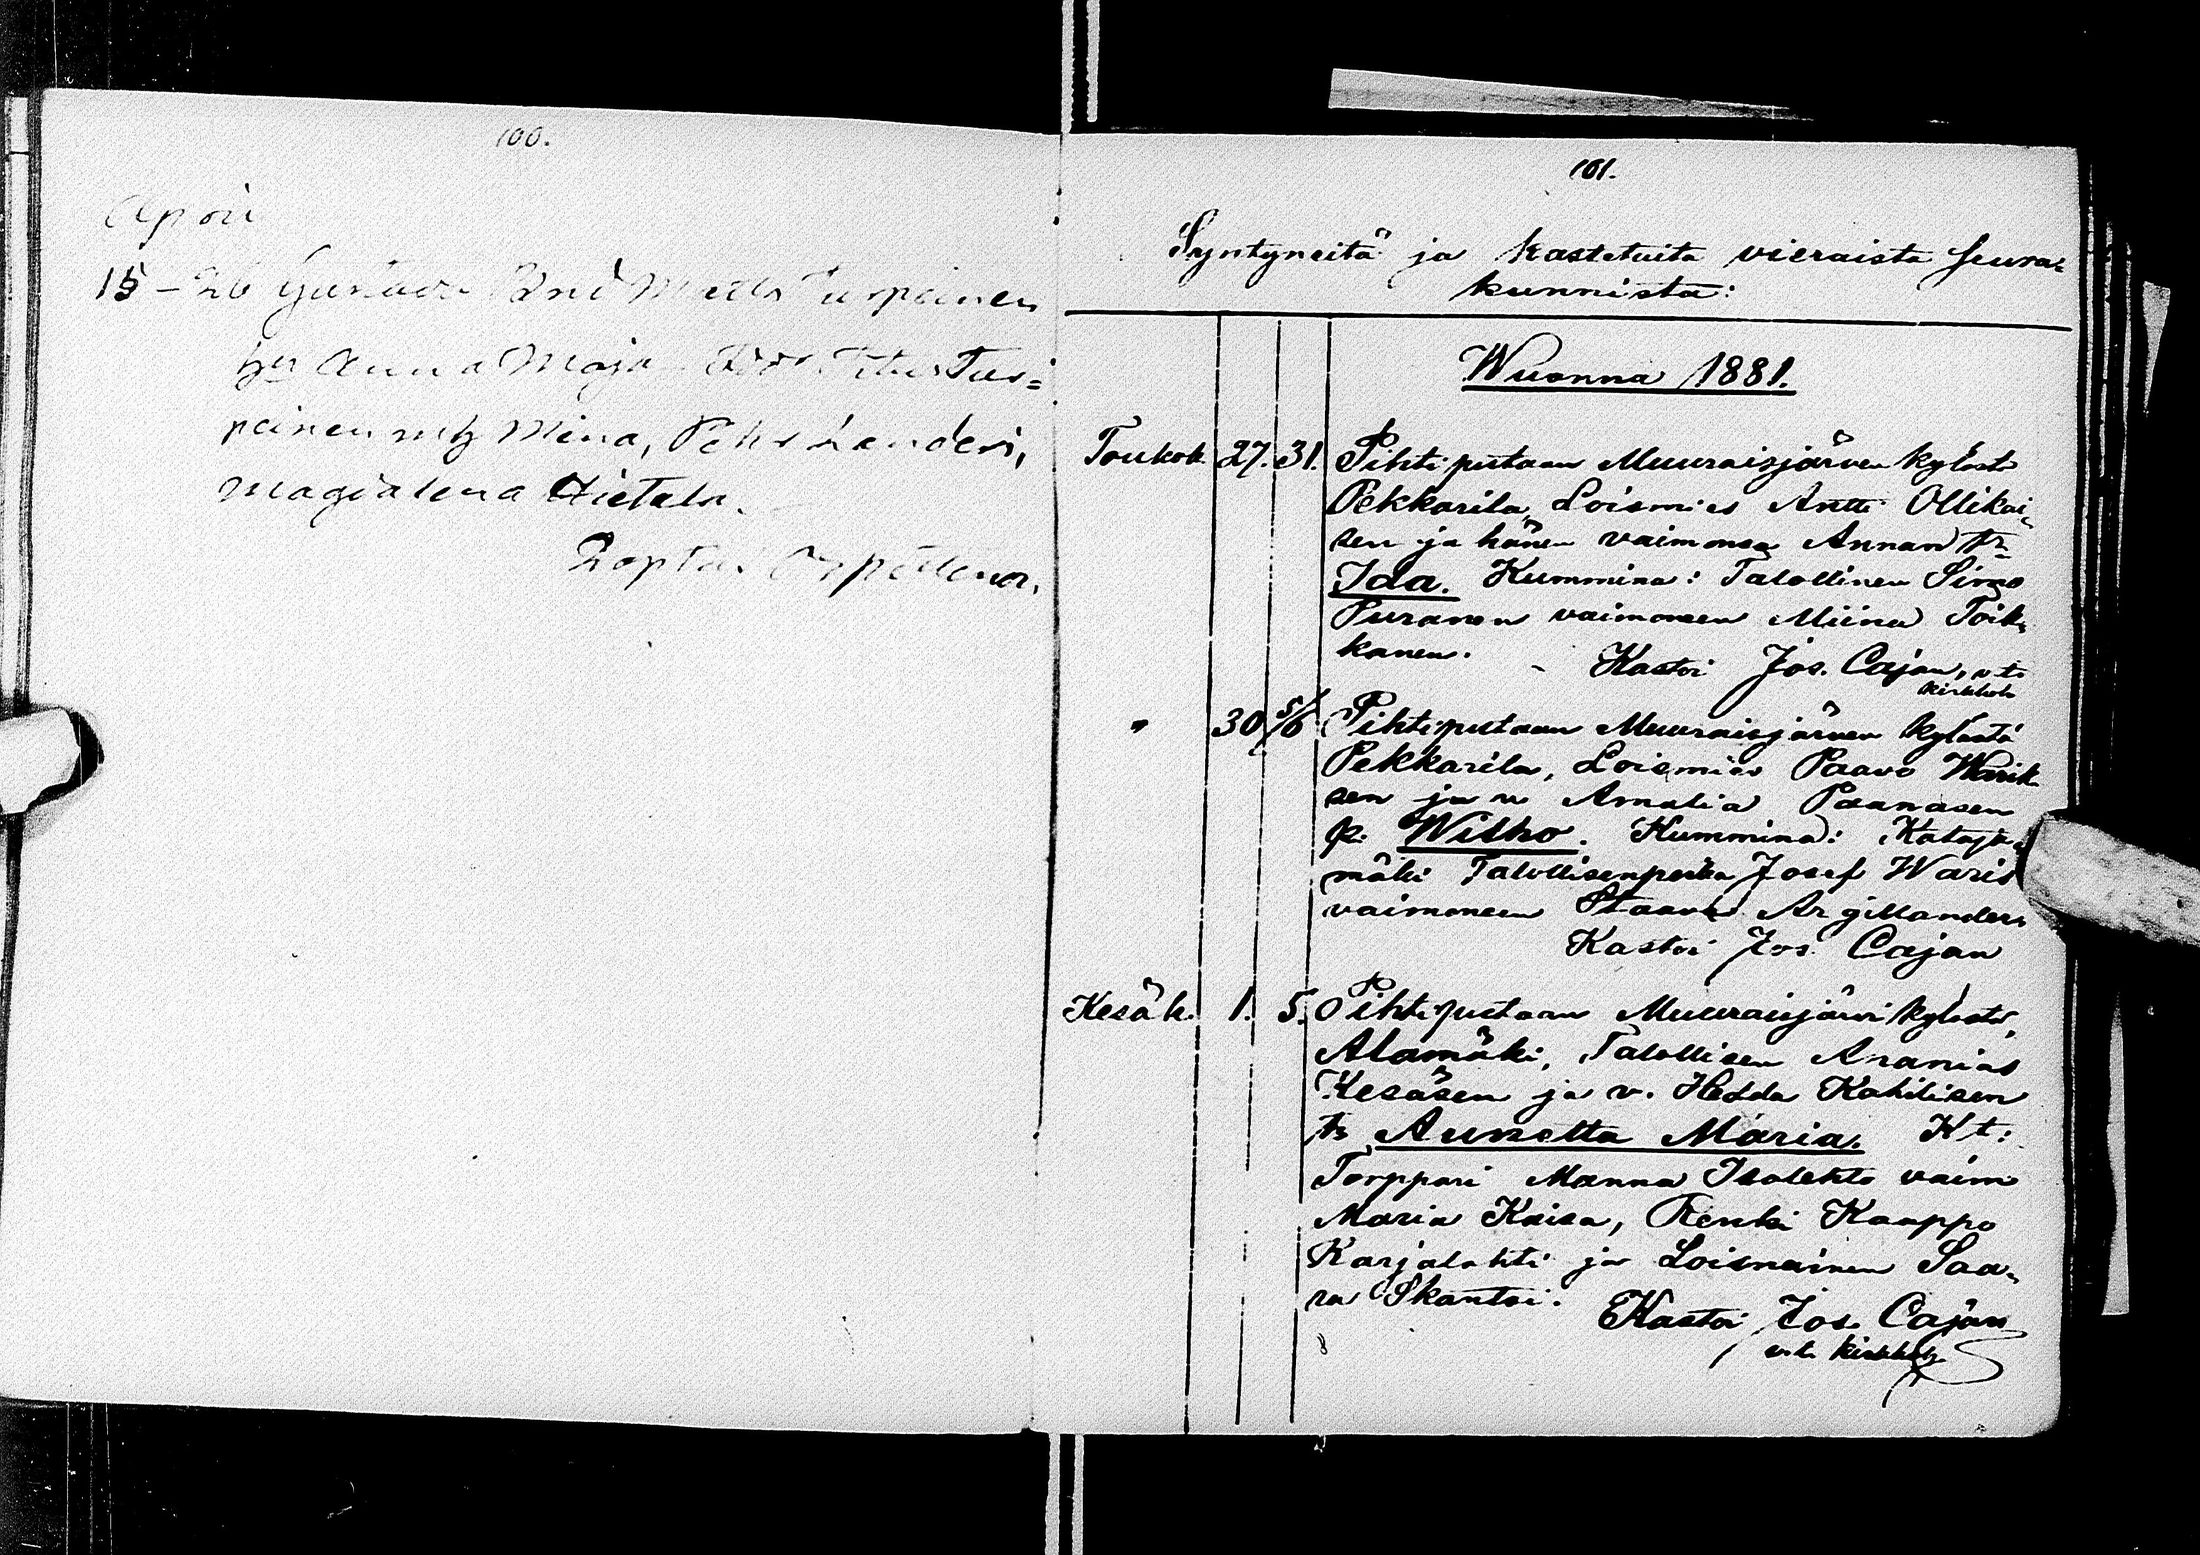 100.
April
15 – 26 Gustava Bnd Matts Turpeinen
hu Anna Maja Titus Tur=
peinen m h Mina, Pehr Landers,
Magdalena Hietala.
101.
Syntyneitä ja kastetuita vieraista seura-
kunnista:
Wuonna 1881.
Toukok. 27. 31. Pihtiputaan Muuraisjärven kylästä
Pekkarila, Loismies Antti Ollikai-
sen ja hänen vaimonsa Annan tr
Ida. Kummina: Talollinen Simo
Puranen vaimoneen Miina Toik-
kanen.
Kastoi Jos. Cajan, v.t.
kirkkoh
" 30 5/6 Pihtiputaan Muuraisjärven kylästä
Pekkarila, Loismies Paavo Warik
sen ja v Amalia Paanasen
p. Wilho. Kummina: Kataja-
mäki Talollisenpoika Josef Waris
vaimoneen Staava Argillander.
Kastoi Jos. Cajan
Kesäk. 1. 5. Pihtiputaan Muuraisjärvi kylästä,
Alamäki, Talollisen Ananias
Kesäsen ja v. Hedda Kahilisen
tr Aunetta Maria. Kt:
Torppari Manna Isolehto vaim
Maria Kaisa, Renki Kauppo
Karjalahti ja Loisnainen Saa-
ra Skantsi.
Kastoi Jos. Cajan
v.t. kirkkoh